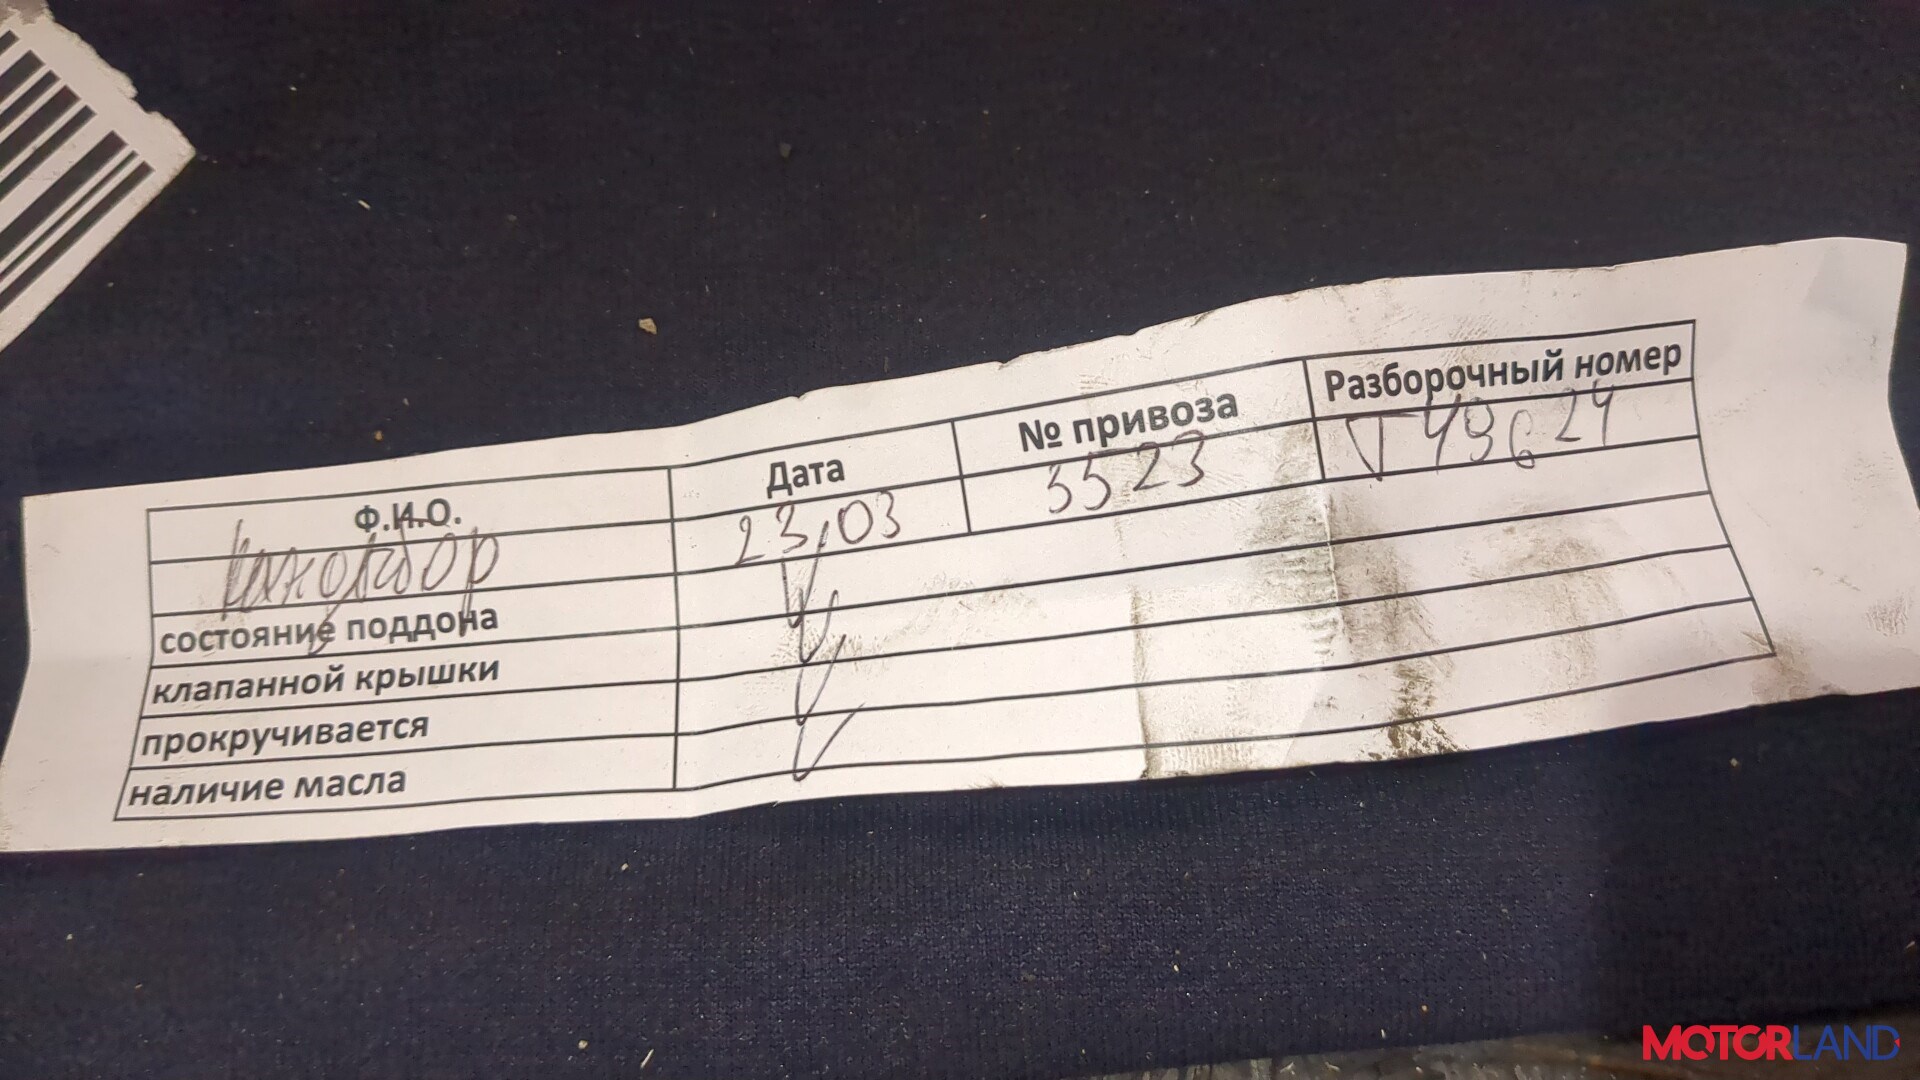 Ф.И.О. Дата № привоза Разборочный номер
23,03 3523
состояние поддона
клапанной крышки
прокручивается
наличие масла
MOTORLAND